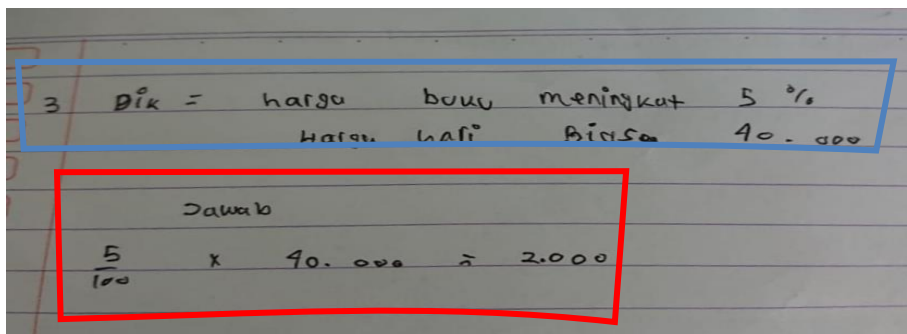 3 Dik = harga buku meningkat 5 %
Harga hari Biasa 40.000
Jawab
5/100 x 40.000 = 2.000